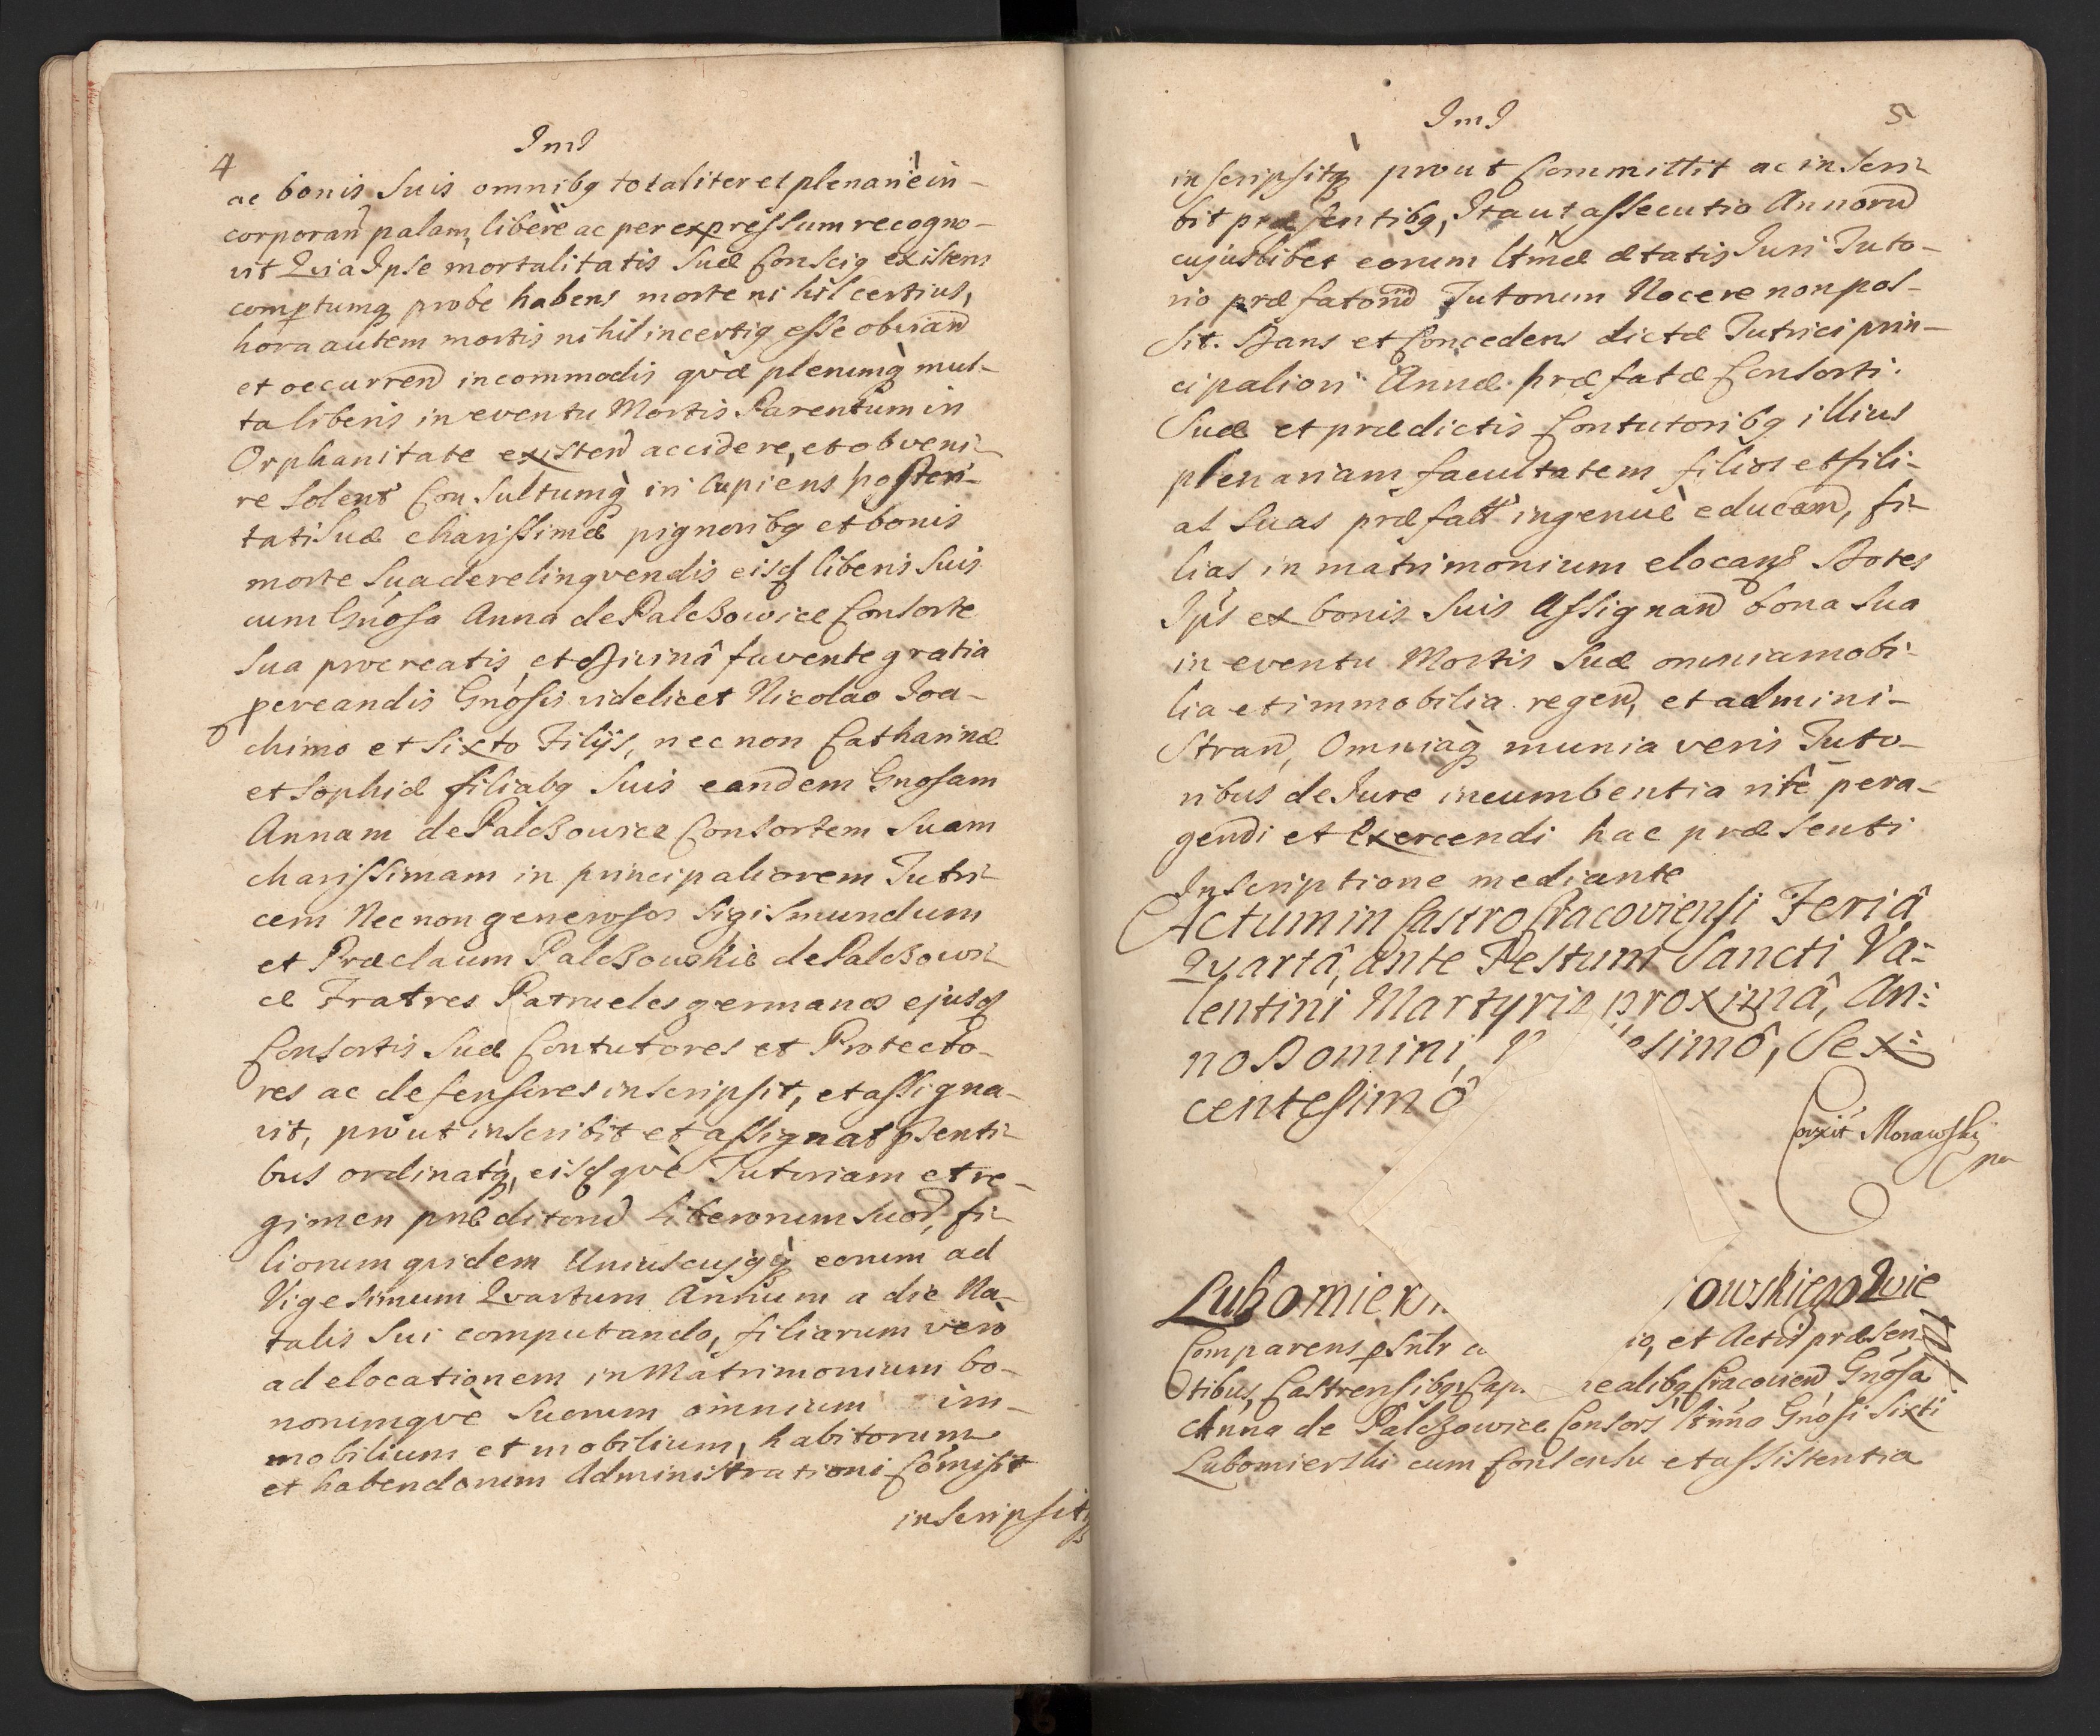 4
JmJ
ac bonis suis omnibq totaliter et plenarie in-
corporan palam, libere ac per expressum recogno-
vit Quia Ipse mortalitatis Suæ Consciq existens
compertumq probe habens morte nihil certius,
hora autem mortis nihil incertiq esse obviand
et occurrend incommodis quæ plerumq mul-
ta liberis in eventu Mortis Parentum in
Orphanitate existend accidere, et obveni-
re solent Consultumq iri cupiens posteri-
tati Suæ charissimæ pignoribq et bonis
morte Sua derelinqvendis eisq liberis Suis
cum Gnosa Anna de Palczowice Consorte
Sua procreatis, et Divinâ favente gratia
pcreandis Gnosis videlicet Nicolao Joa-
chimo et Sixto Filijs, nec non Catharinæ
et Sophiæ filiabq Suis eandem Gnosam
Annam de Palczowice Consortem Suam
charissimam in principaliorem Tutri-
cem Nec non generosos Sigismundum
et Præclaum Palczowskie de Palczowi-
ce Fratres Patrueles germanos ejusq
Consortis Suæ Contutores et Protecto-
res ac defensores inscripsit, et assigna-
vit, prout inscribit et assignat psenti-
bus ordinatq, eisqquè Tutoriam et re-
gimen præditord Liberorum Suord, fi-
liorum quidem Uniuscujqq eorum ad
Vigesimum Qvartum Annum a die Na-
talis Sui computando, filiarum vero
ad elocationem in Matrimonium bo-
norumqvè Suorum omnium im-
mobilium et mobilium, habitorum
et habendorum Administrationi Comisit
inscripsitq
JmJ
5
inscripsitq prout Committit ac inscri-
bit præsentibq, Ita ut assecutio Annord
cujuslibet eorum ltmæ ætatis Juri Tuto-
rio præfatord Tutorum Nocere non pos-
sit. Dans et Concedens dictæ Tutrici prin-
cipaliori Annæ præfatæ Consorti
Suæ et prædictis Contutoribq illius
plenariam facultatem filios et fili-
as Suas præfatt ingenuè educand, fi-
lias in matrimonium elocand Dotes
Ipis ex bonis Suis Assignand bona Sua
in eventu Mortis Suæ omnia mobi-
lia et immobilia regend, et admini-
strand, Omniaq munia veris Tuto-
ribus de Jure incumbentia ritê pera-
gendi et Exercendi hac præsenti
Inscriptione mediante
Actum in Castro Cracoviensi Feriâ
Qvartâ, ante Festum Sancti Va-
lentini Martyris proximâ, An-
no Domini, esimô, Sex-
centesimô
Corexit Morawski
mp
Lubomiers owskiego Qvie
tat
Comparens psnlr io, et Actis præsen-
tibus, Castrensibq Cap nealibq Cracovien Gnosa
Anna de Palczowice Consors ltima Gnosi Sixti
Lubomierski cum Consensu et assistentia